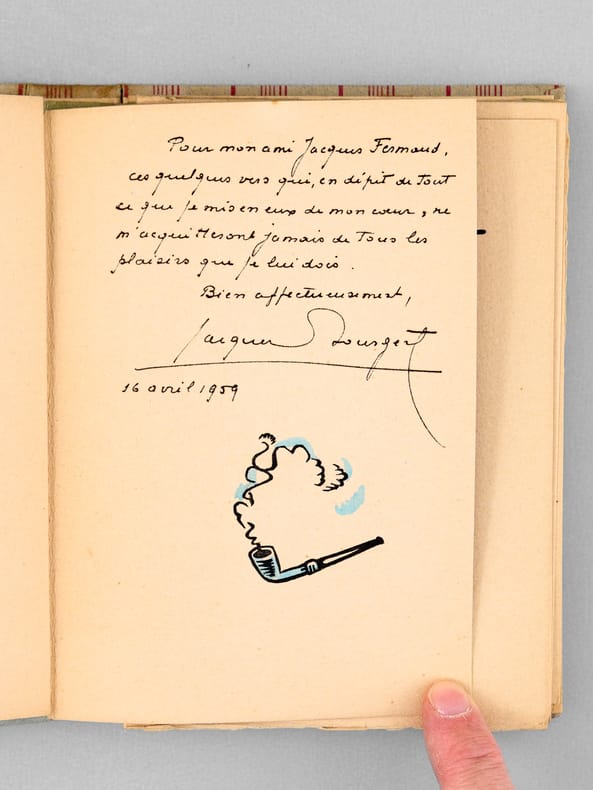 Pour mon ami Jacques Fermaud,
ces quelques vers qui, en dépit de tout
ce que je mis en eux de mon cœur, ne
m'acquitteront jamais de tous les
plaisirs que je lui dois.
Bien affectueusement,
Jacques Bourgeat
16 avril 1959